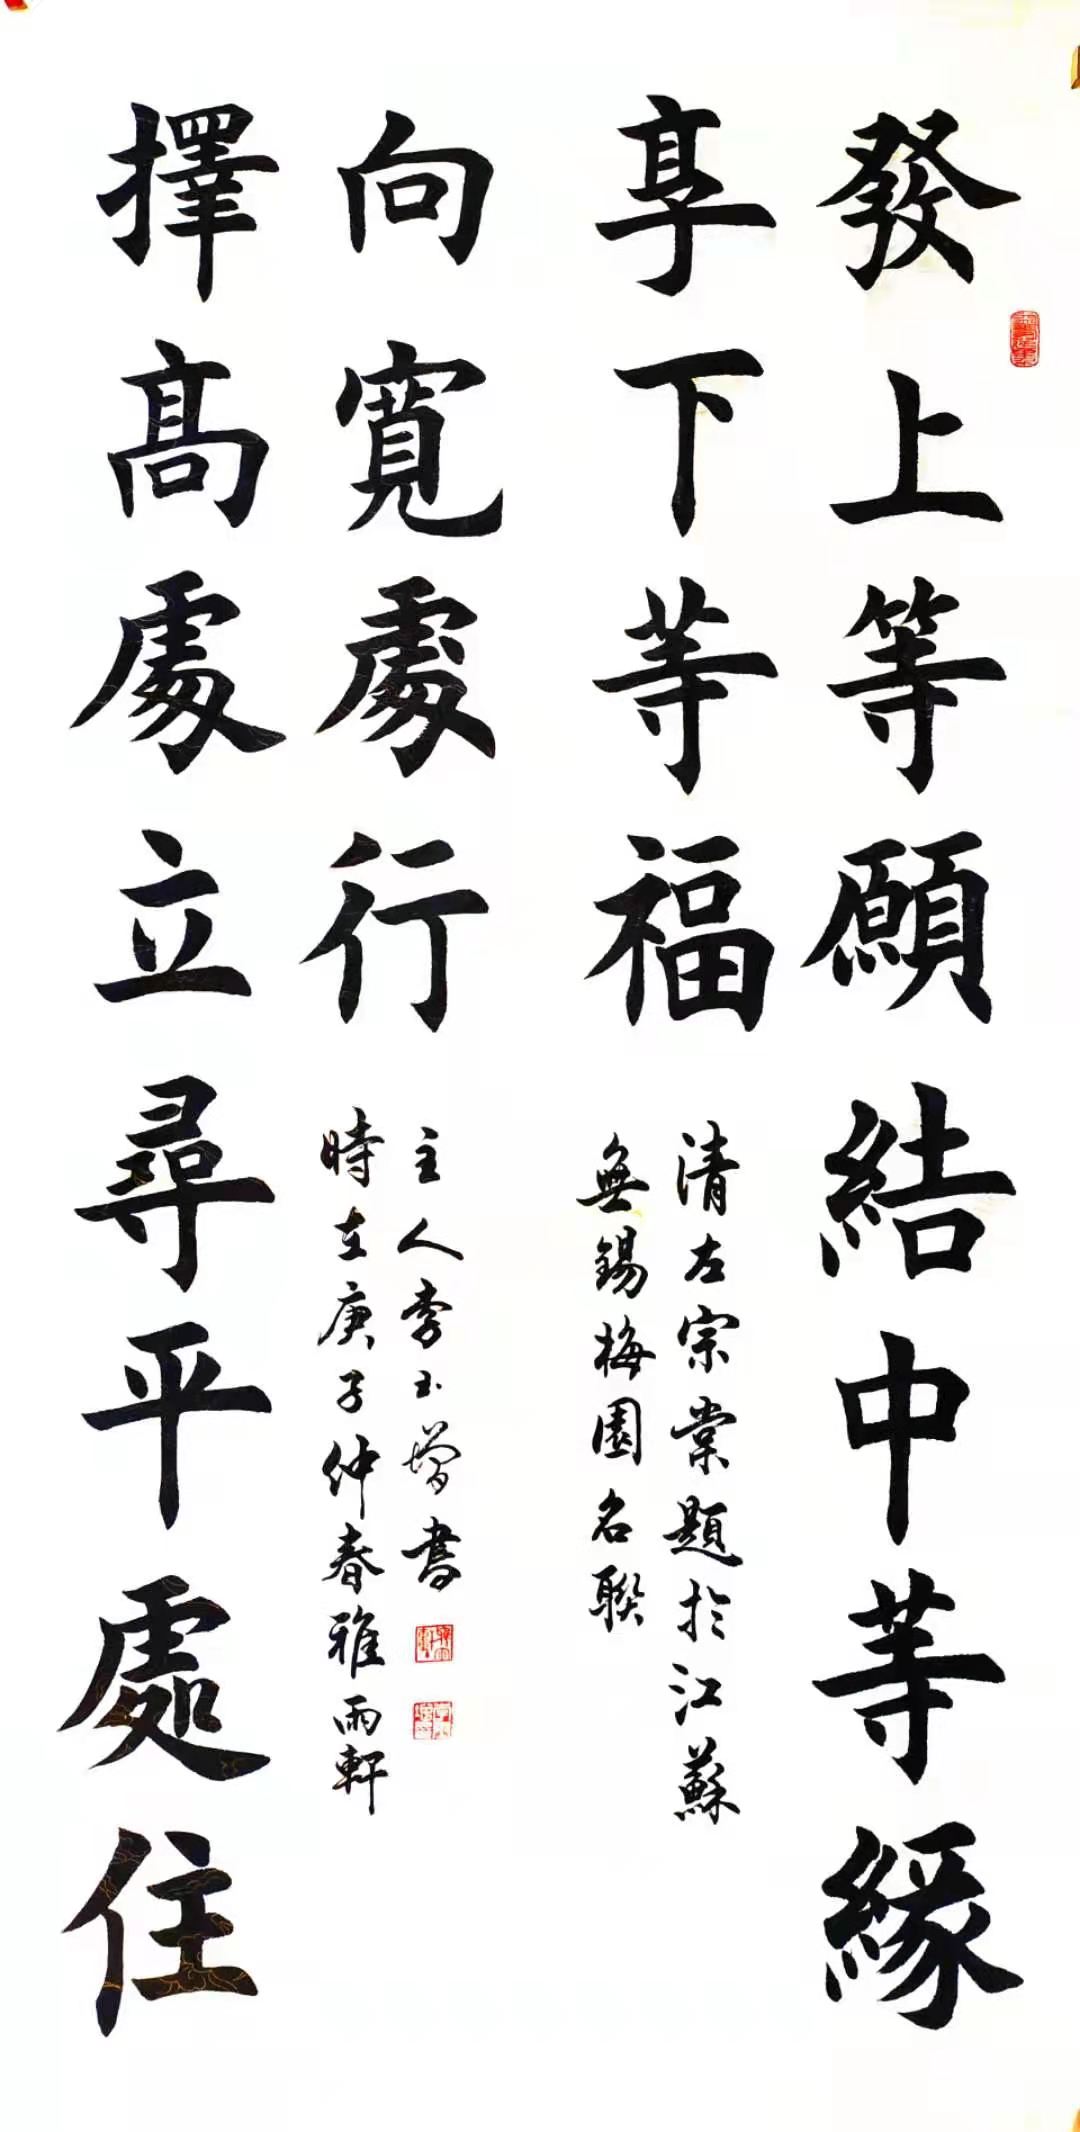 發上等願結中等緣
享下等福
清左宗棠題於江蘇
無錫梅園名聯
擇高處立尋平處住
向寬處行
時在庚子仲春雅雨軒
主人李玉增書